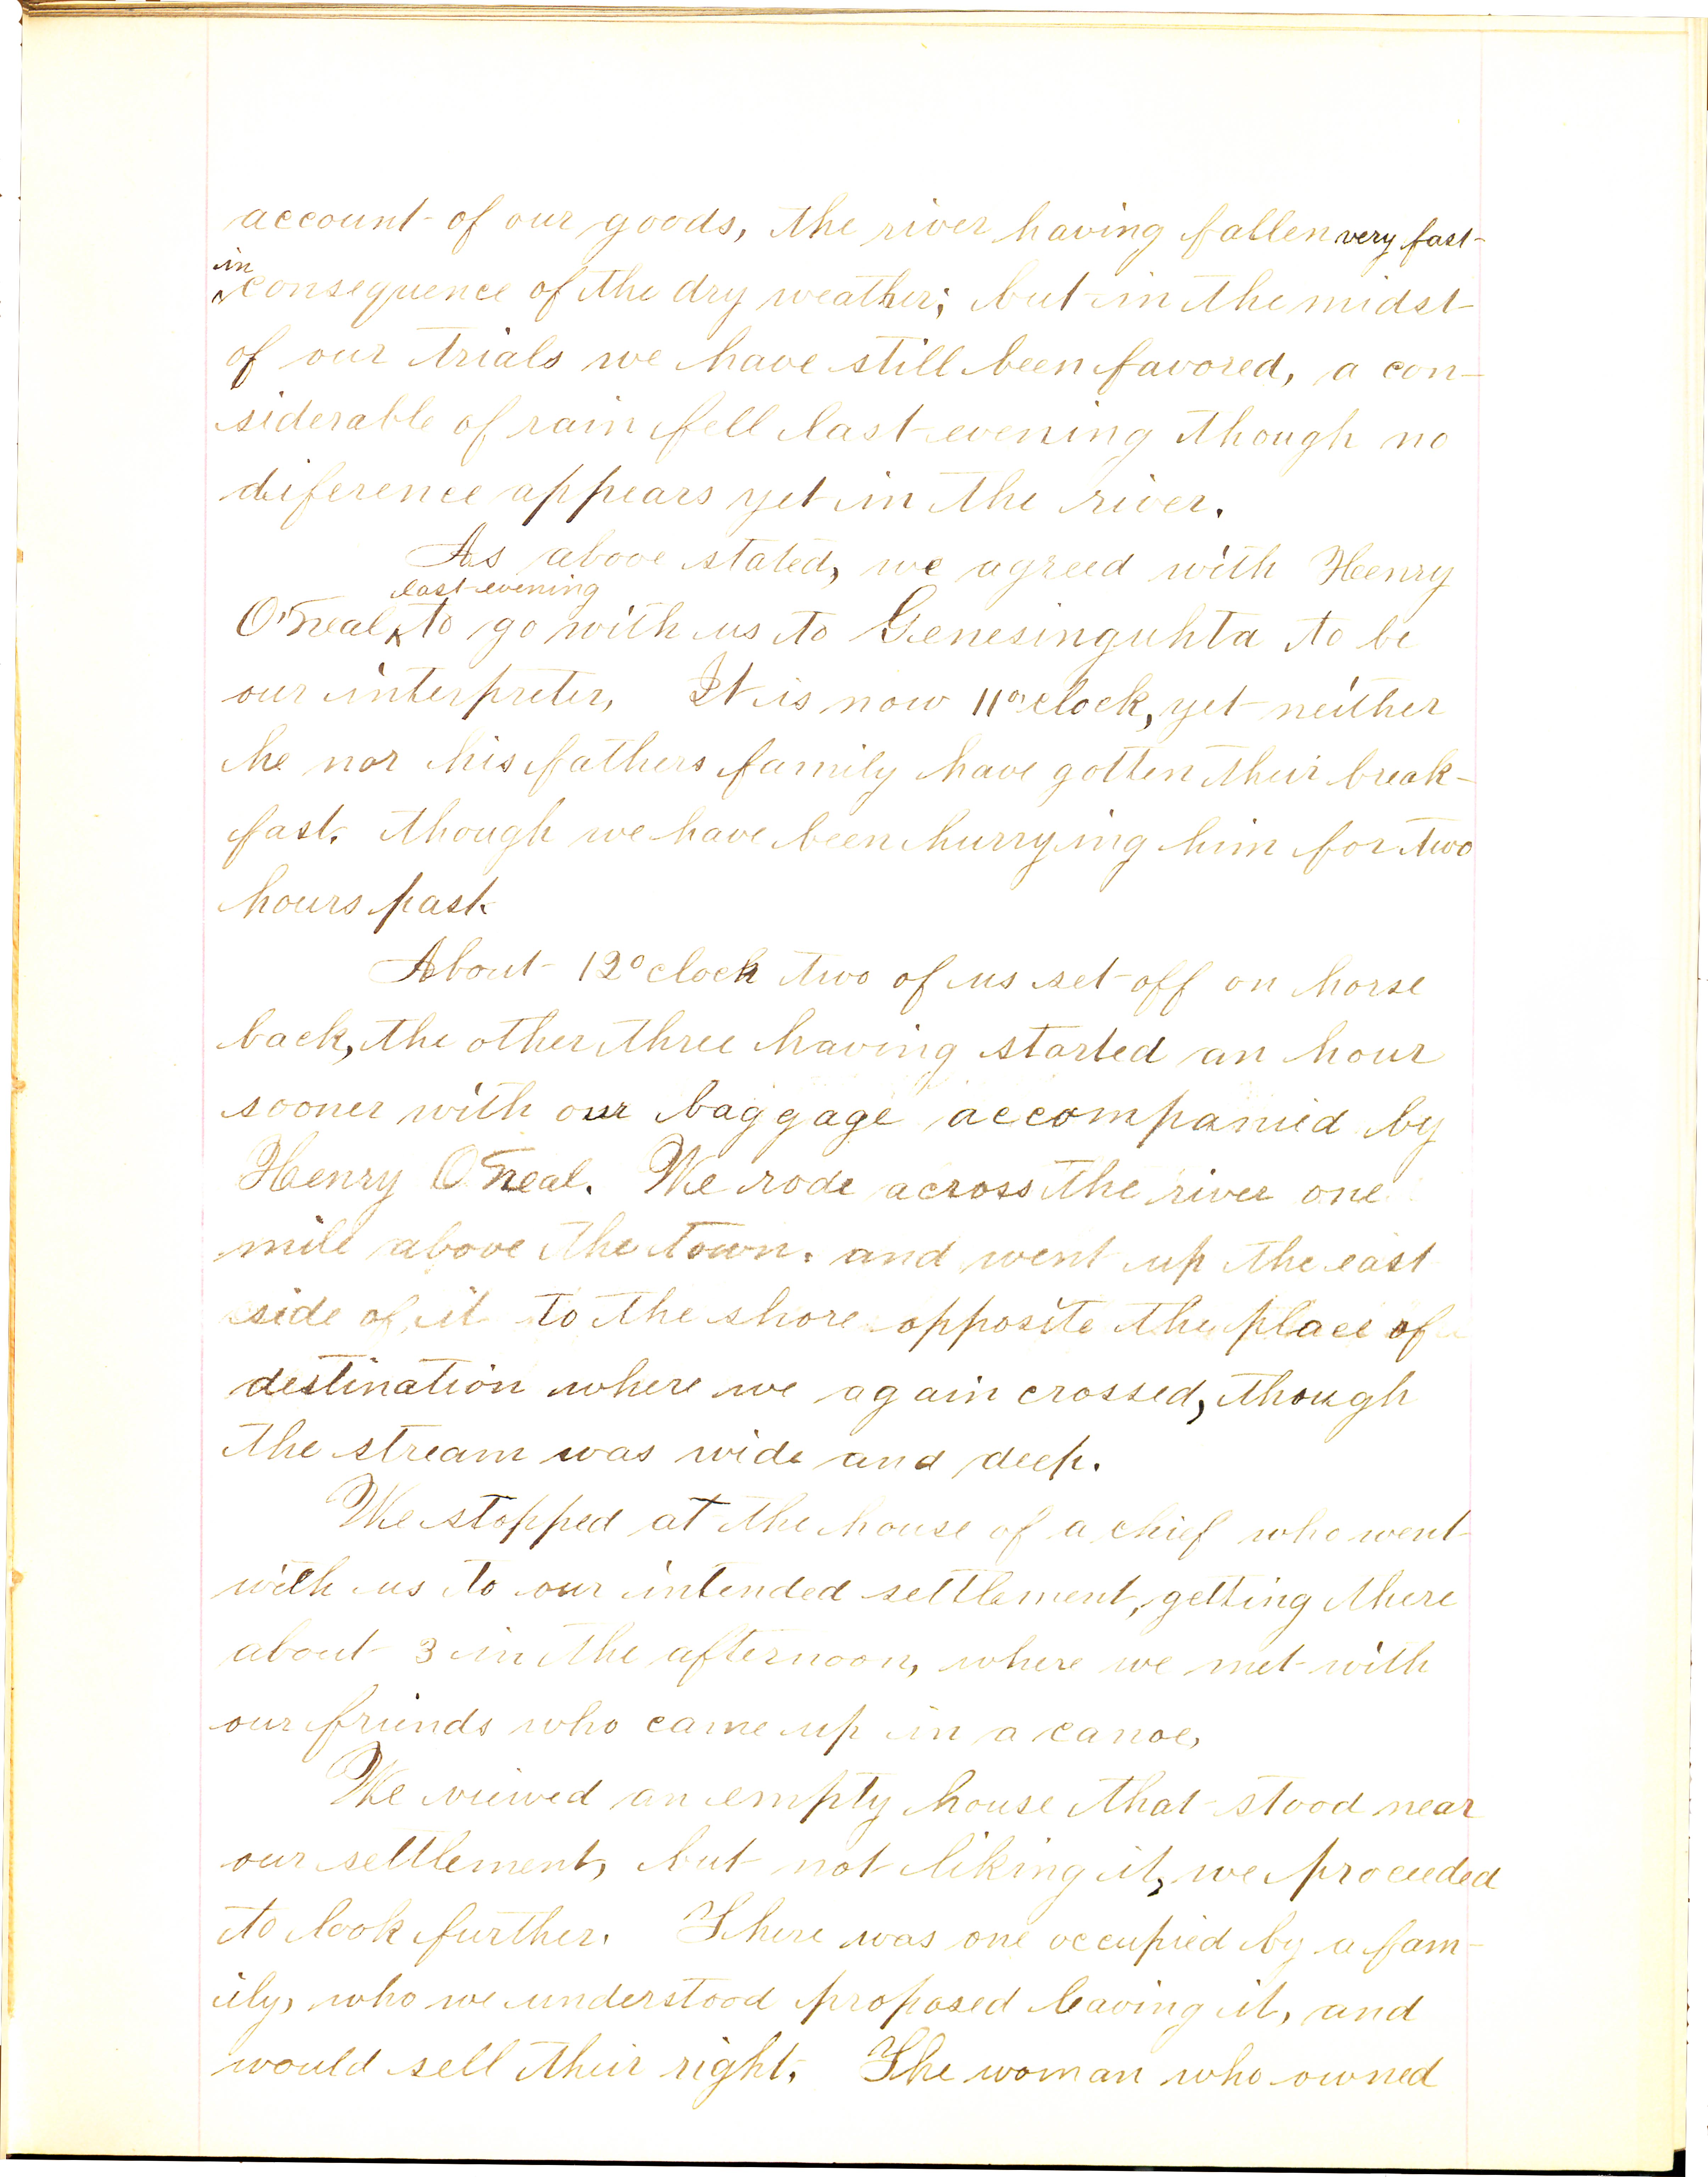 account of our goods, the river having fallen very fast
in consequence of the dry weather; but in the midst
of our trials we have still been favored, a con-
siderable of rain fell last evening though no
diference appears yet in the river.
As above stated, we agreed with Henry
O'Neal last evening to go with us to Genesinguhta to be
our interpreter, It is now 11 o'clock, yet neither
he nor his fathers family have gotten their break-
fast. though we have been hurrying him for two
hours past.
About 12 o clock two of us set off on horse
back, the other three having started an hour
sooner with our baggage accompanied by
Henry O'Neal. We rode across the river one
mile above the town. and went up the east
side of it to the shore opposite the place of
destination where we again crossed, though
the stream was wide and deep.
We stopped at the house of a chief who went
with us to our intended settlement, getting there
about 3 in the afternoon, where we met with
our friends who came up in a canoe,
We viewed an empty house that stood near
our settlement, but not liking it, we proceeded
to look further. There was one occupied by a fam-
ily, who we understood proposed leaving it, and
would sell their right. The woman who owned